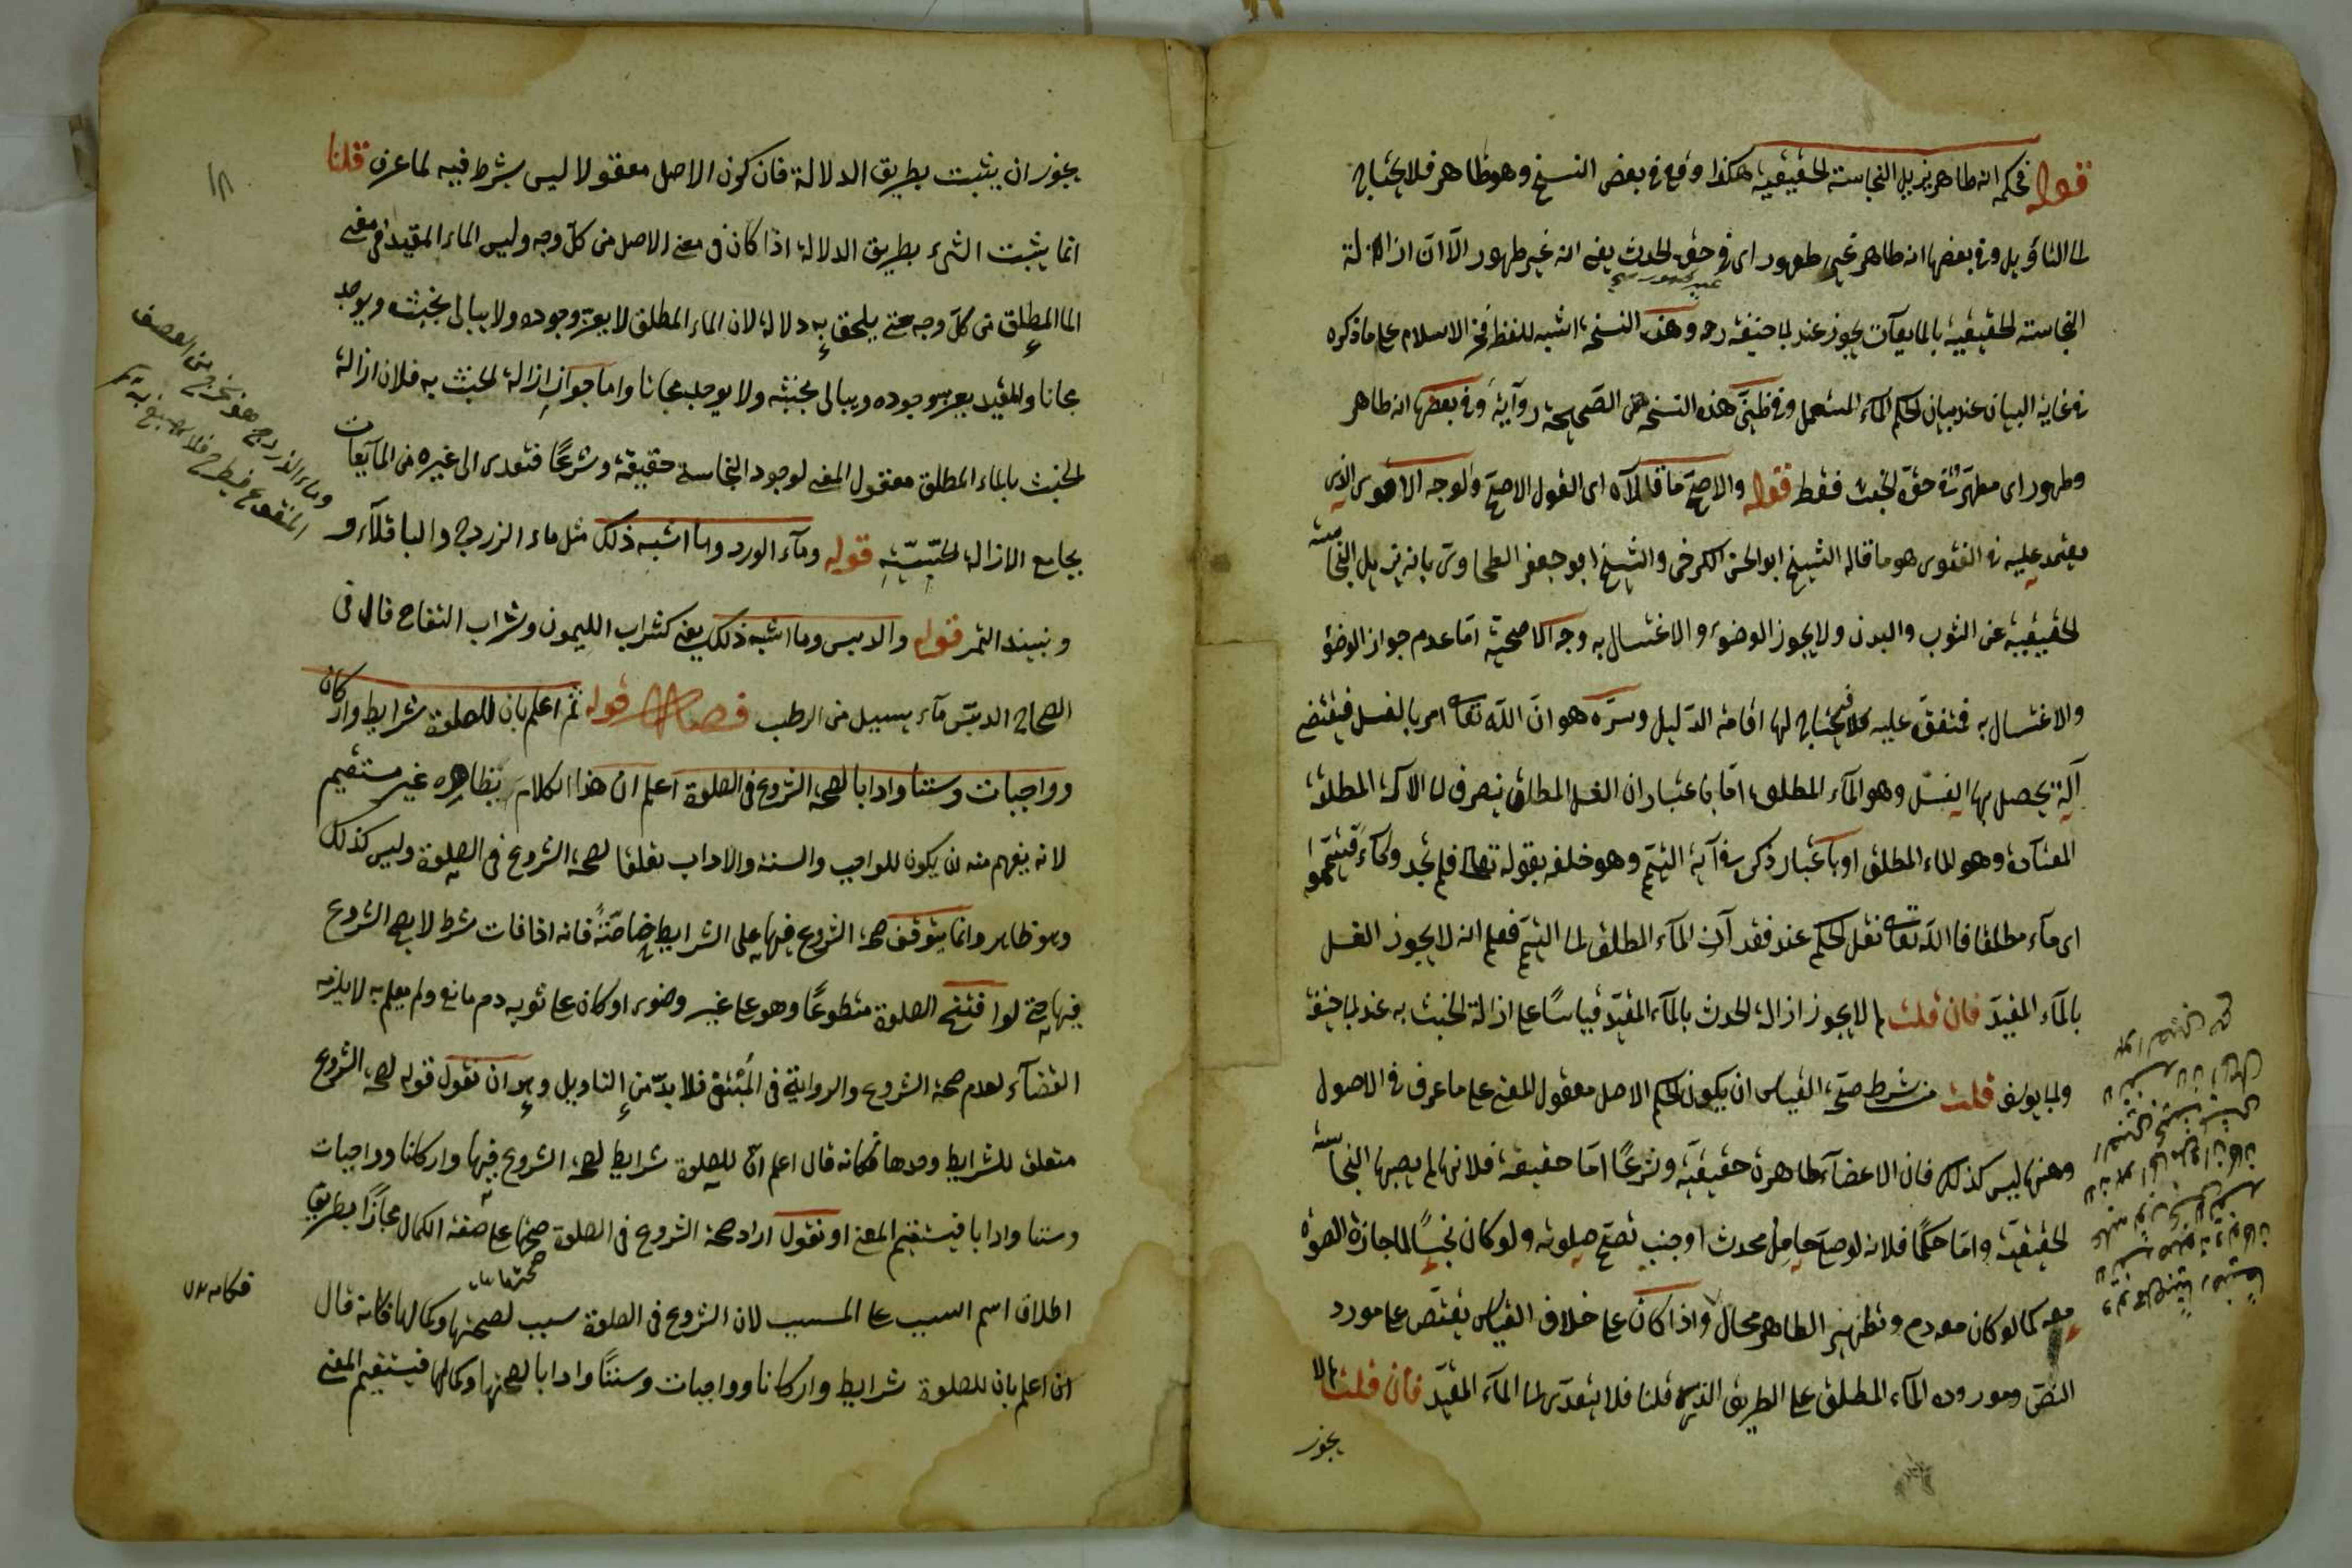 قوله فحكمه انه طاهر يزيل النجاسة الحقيقية هكذا وقع في بعض النسخ وهو ظاهر فلا يحتاج
الى التاويل وفي بعضها انه طاهر غير طهور اي في حق الحدث يعني انه غير طهور الا ان ازالة
النجاسة الحقيقية بالمايعات يجوز عند ابي حنيفة رحه وهذه النسخة اشبه للفظ فخر الاسلام على ما ذكره
في غاية البيان عند بيان لحكم الماء المستعمل وفي ظني هذه النسخة هي الصحيحة رواية وفي بعضها انه طاهر
وطهور اي مطهر في حق الخبث فقط قوله والاصح ما قالاه اي القول الاصح والوجه الاقوى الذي
يعتمد عليه في الفتوى هو ما قاله الشيخ ابو الحسن الكرخى والشيخ ابو جعفر الطحاوى بانه يزيل النجاسة
الحقيقية عن الثوب والبدن ولا يجوز الوضوء والاغتسال به وجه الاصحية اما عدم جواز الوضوء
والاغتسال به فمتفق عليه فلا يحتاج لها اقامة الدليل وسره هو ان الله تعالى امر بالغسل فيقتضى
آلة يحصل بها الغسل وهو الماء المطلق اما باعتبار ان الغسل المطلق ينصرف الى الآلة المطلقة
المعتادة وهو الماء المطلق او باعتبار ذكره في آية التيمم وهو خلفه بقوله تعالى فلم تجدوا ماء فتيمموا
اى ماء مطلقا فالله تعالى نقل الحكم عند فقدان الماء المطلق الى التيمم فعلم انه لا يجوز الغسل
بالماء المقيد فان قلت لم لا يجوز ازالة الحدث بالماء المقيد قياسا على ازالة الخبث به عند ابي حنيفة
وابي يوسف قلت من شرط صحة القياس ان يكون الحكم الاصل معقول المعنى على ما عرف في الاصول
وههنا ليس كذلك فان الاعضاء طاهرة حقيقية وشرعا اما حقيقة فلانها لم يصبها النجاسة
الحقيقية واما حكما فلانه لو صلى حامل محدث او جنب تصح صلوته ولو كان نجسا لما جازت الصلوة
معه كما لو كان معه دم وتطهير الطاهر محال واذا كان على خلاف القياس يقتصر على مورد
النص ومورده الماء المطلق على الطريق الذي قلنا فلا يتعدى الى الماء المقيد فان قلت لم لا
يجوز
يجوز ان يثبت بطريق الدلالة فان كون الاصل معقولا ليس بشرط فيه لما عرف قلنا
انما يثبت الشىء بطريق الدلالة اذا كان في معنى الاصل من كل وجه وليس الماء المقيد في معنى
الماء المطلق من كل وجه حتى يلحق به دلالة لان الماء المطلق لا يعز وجوده ولا يبالى بخبثه ويوجد
مجانا والمقيد يعز وجوده ويبالى بخبثه ولا يوجد مجانا واما جواز ازالة الخبث به فلان ازالة
الخبث بالماء المطلق معقول المعنى لوجود النجاسة حقيقة وشرعا فتعدى الى غيره من المايعات
بجامع الازالة الحسية قوله وماء الورد وما اشبه ذلك مثل ماء الزردج والباقلاء و
ونبيذ التمر قوله والدبس وما اشبه ذلك يعنى كشراب الليمون وشراب التفاح قال فى
الصحاح الدبس ماء يسيل من الرطب فصل قوله ثم اعلم بان للصلوة شرايط واركان
وواجبات وسننا وادابا لصحة الشروع فى الصلوة اعلم ان هذا الكلام بظاهره غير مستقيم
لانه يفهم منه ان يكون للواجب والسنة والاداب تعلقا لصحة الشروع فى الصلوة وليس كذلك
وهو ظاهر وانما يتوقف صحة الشروع فيها على الشرايط خاصة فانه اذا فات شرط لا يصح الشروع
فيها حتى لو افتتح الصلوة متطوعا وهو على غير وضوء او كان على ثوبه دم مانع ولم يعلم به لا يلزمه
القضاء لعدم صحة الشروع والرواية فى المبتغى فلا بد من التاويل وهو ان نقول قوله لصحة الشروع
متعلق للشرايط وحدها فكانه قال اعلم ان للصلوة شرايط لصحة الشروع فيها واركانا وواجبات
وسننا وادابا فيستقيم المعنى او نقول اراد صحة الشروع فى الصلوة صحتها على صفة الكمال مجازا بطريق
اطلاق اسم السبب على المسبب لان الشروع فى الصلوة سبب لصحتها وكمالها فكانه قال
اعلم بان للصلوة شرايط واركانا وواجبات وسننا وادابا لصحتها وكمالها فيستقيم المعنى
١٨
وماء الزردج هو يخرج من العصفر
المنقوع فيطرح فلا يصبغ به